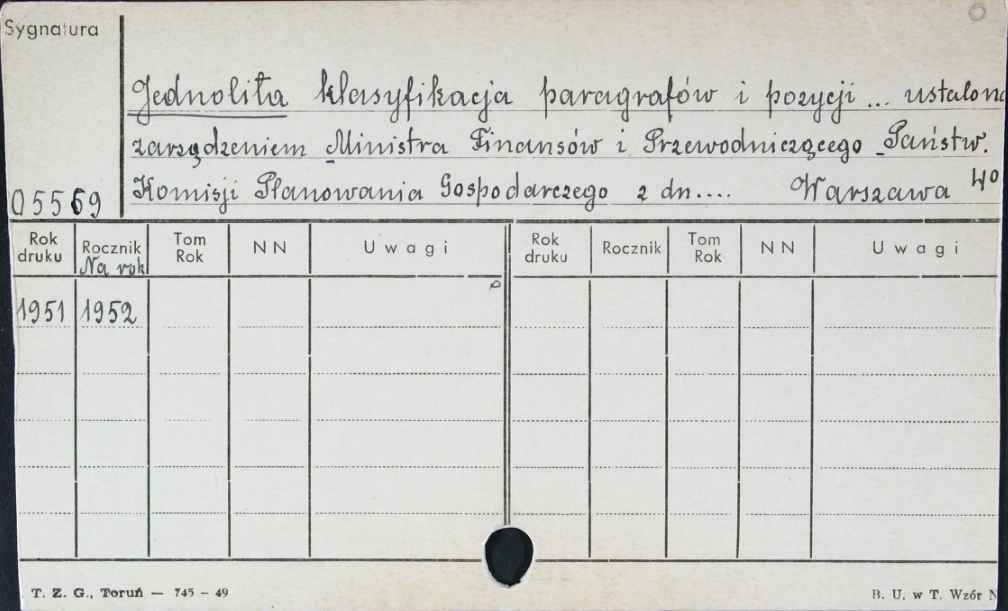 Sygnatura
Jednolita klasyfikacja paragrafów i pozycji ... ustalon
zarządzeniem Ministra Finansów i Przewodniczącego Państw.
Komisji Planowania Gospodarczego z dn.... Warszawa 40
05569
Rok druku Rocznik Na rok Tom Rok NN Uwagi Rok druku Rocznik Tom Rok NN Uwagi
1951 1952
T. Z. G., Toruń — 745 – 49 B. U. w T. Wzór N